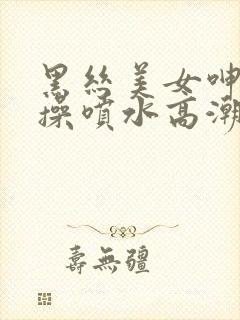 黑丝美女呻
操喷水高潮
壽無疆